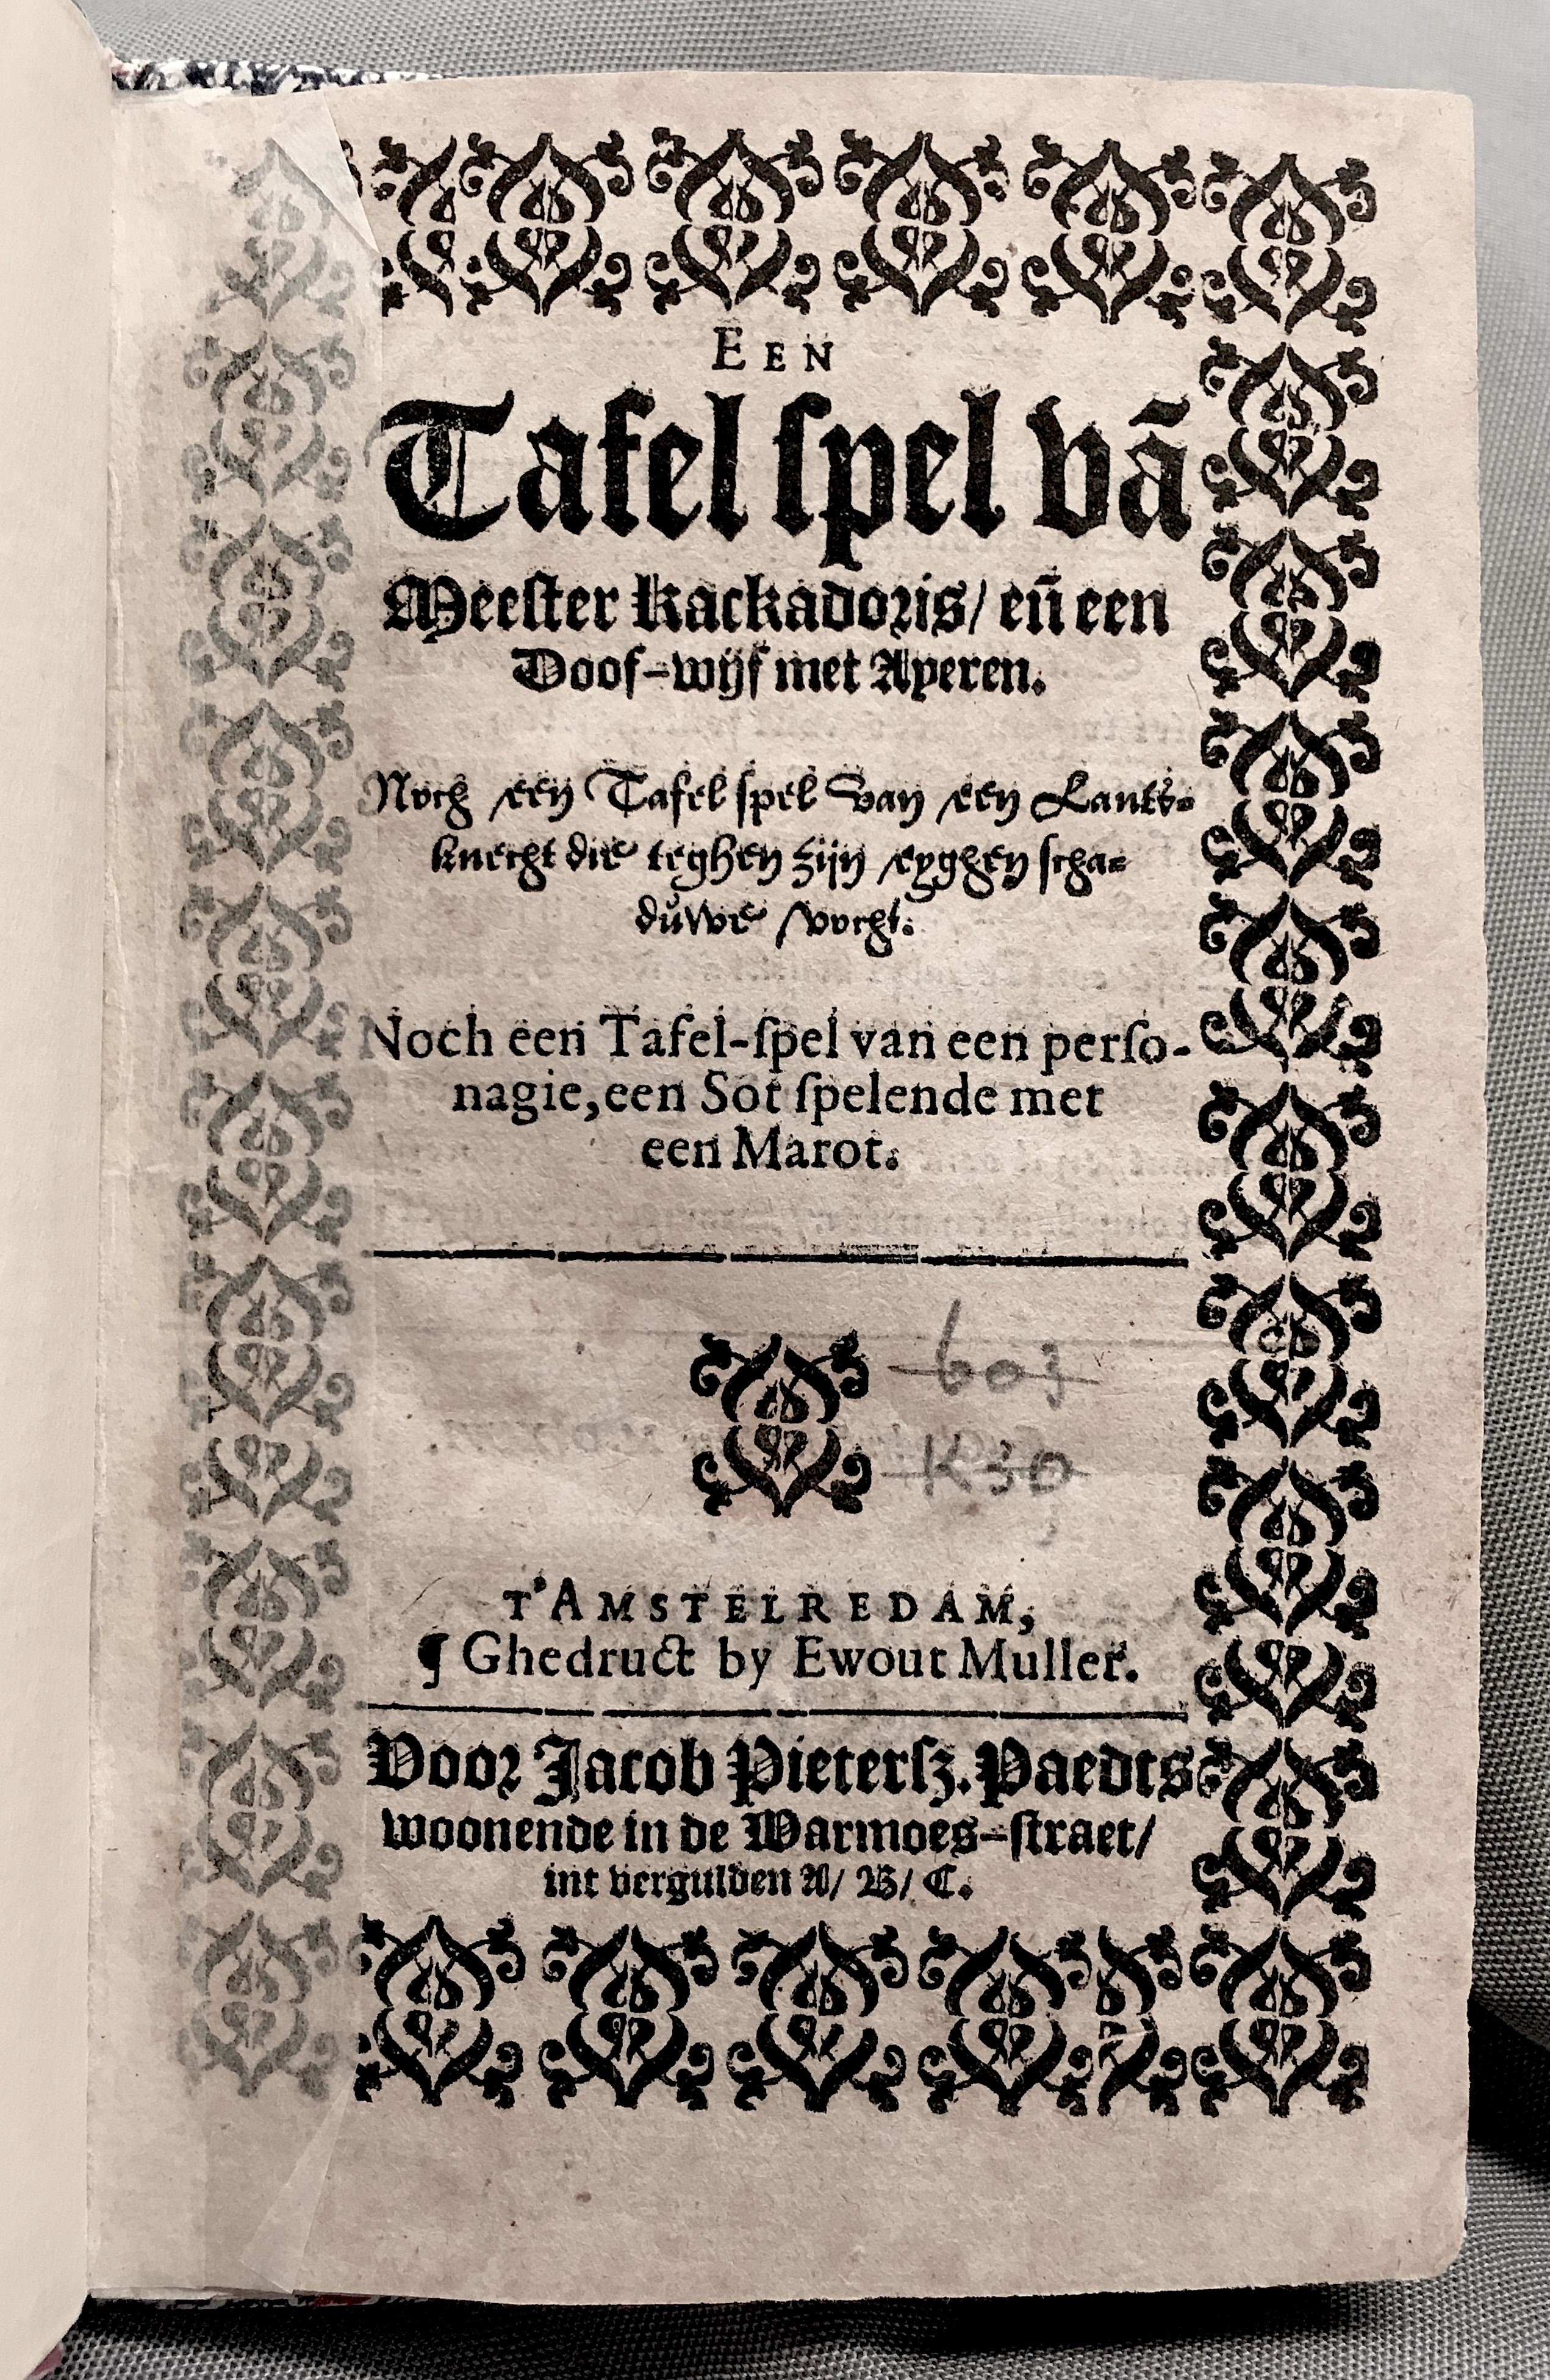 EEN
Tafel spel vã
Meester Kackadoris/ en̄ een
Doof-wijf met Ayeren.
Noch een Tafel spel van een Lants-
knecht die teghen zijn eyghen scha-
duwe vocht.
Noch een Tafel-spel van een perso-
nagie, een Sot spelende met
een Marot.
603
K30
T'AMSTELREDAM,
¶ Ghedruct by Ewout Muller.
Voor Jacob Pietersz. Paedts
woonende in de Warmoes-straet/
int vergulden A/ B/ C.